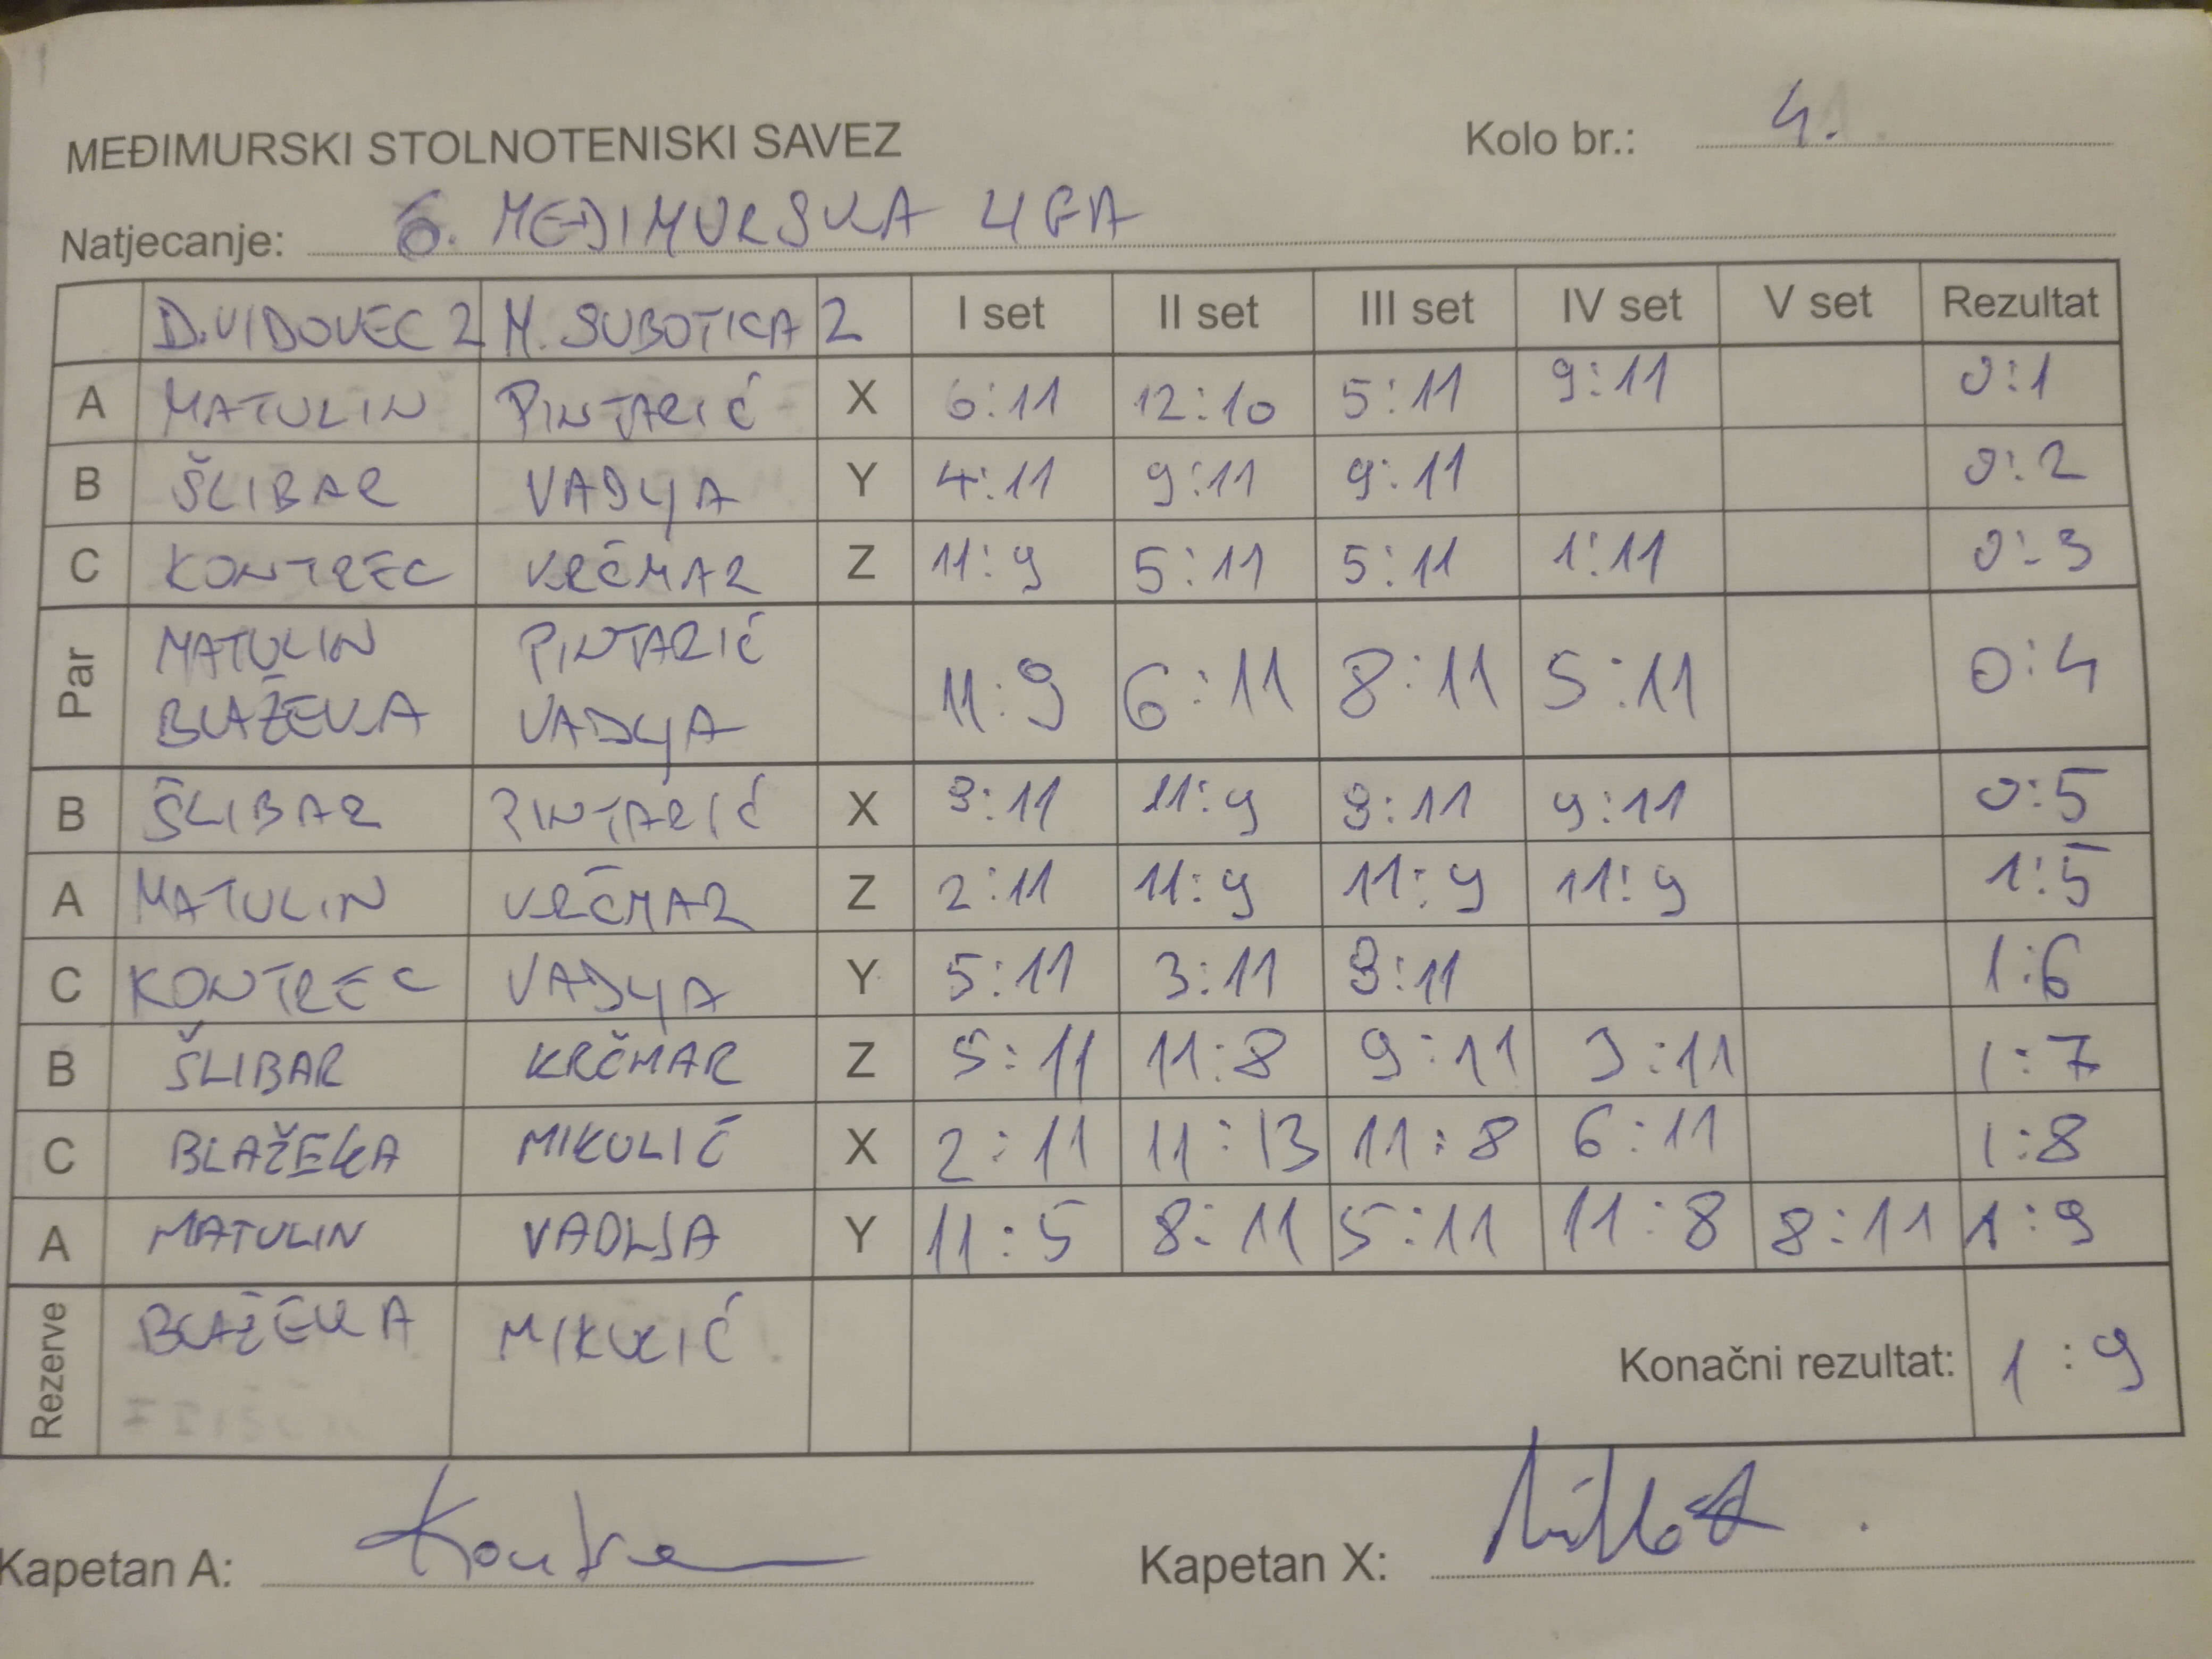 MEĐIMURSKI STOLNOTENISKI SAVEZ Kolo br.: 4.
Natjecanje: 6. MEĐIMURSKA LIGA
D.VIDOVEC 2 M. SUBOTICA 2 I set II set III set IV set V set Rezultat
A MATULIN PINTARIĆ X 6:11 12:10 5:11 9:11 0:1
B ŠLIBAR VADLJA Y 4:11 9:11 9:11 0:2
C KONTREC KRČMAR Z 11:9 5:11 5:11 1:11 0:3
Par MATULIN PINTARIĆ
BLAŽEKA VADLJA 11:9 6:11 8:11 5:11 0:4
B ŠLIBAR PINTARIĆ X 11:9 9:11 0:5
A MATULIN KRČMAR Z 2:11 11:9 11:9 11:9 1:5
C KONTREC VADLJA Y 5:11 3:11 1:6
B ŠLIBAR KRČMAR Z 5:11 11:8 9:11 1:7
C BLAŽEKA MIKULIĆ X 2:11 11:13 11:8 6:11 1:8
A MATULIN VADLJA Y 11:5 8:11 5:11 11:8 8:11 1:9
Rezerve BLAŽEKA MIKULIĆ
Konačni rezultat: 1:9
Kapetan A: Kapetan X: